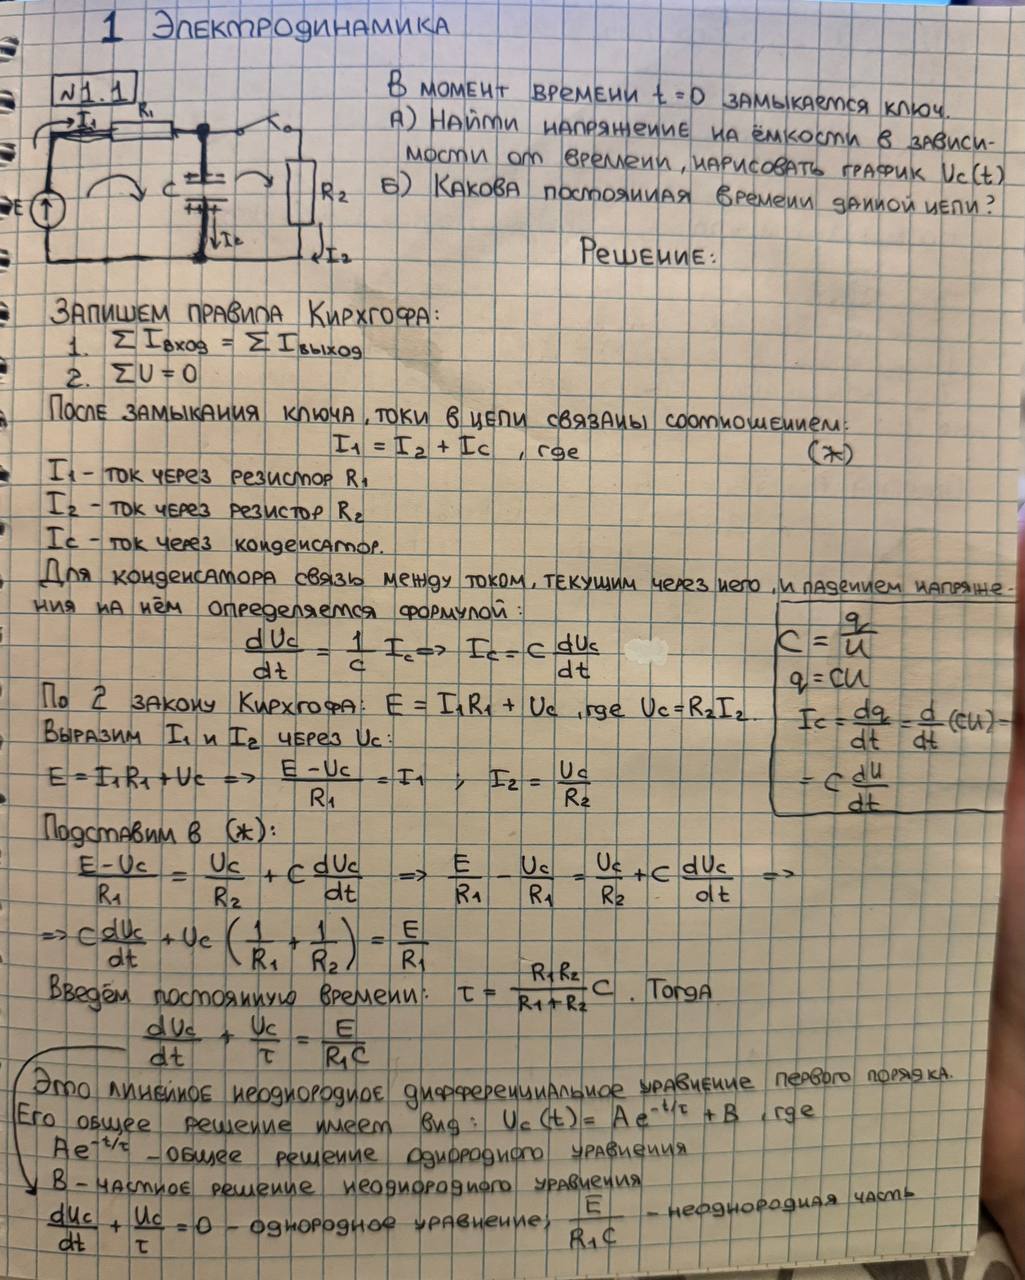 1 Электродинамика
N1.1
I₁ R₁
E C R₂
Ic I₂
В момент времени t=0 замыкается ключ.
А) Найти напряжение на ёмкости в зависи-
мости от времени, нарисовать график Uc(t)
Б) Какова постоянная времени данной цепи?
Решение:
Запишем правила Кирхгофа:
1. Σ Iвход = Σ Iвыход
2. ΣU = 0
После замыкания ключа, токи в цепи связаны соотношением:
I₁ = I₂ + Ic , где (*)
I₁ - ток через резистор R₁
I₂ - ток через резистор R₂
Ic - ток через конденсатор.
Для конденсатора связь между током, текущим через него, и падением напряже-
ния на нём определяется формулой:
dUc/dt = 1/C Ic ⇒ Ic = C dUc/dt
C = q/U
q = CU
Ic = dq/dt = d/dt (CU) =
= C dU/dt
По 2 закону Кирхгофа: E = I₁R₁ + Uc , где Uc = R₂I₂.
Выразим I₁ и I₂ через Uc:
E = I₁R₁ + Uc ⇒ (E - Uc)/R₁ = I₁ ; I₂ = Uc/R₂
Подставим в (*):
(E - Uc)/R₁ = Uc/R₂ + C dUc/dt ⇒ E/R₁ - Uc/R₁ = Uc/R₂ + C dUc/dt ⇒
⇒ C dUc/dt + Uc (1/R₁ + 1/R₂) = E/R₁
Введём постоянную времени: τ = R₁R₂/(R₁+R₂) C . Тогда
dUc/dt + Uc/τ = E/(R₁C)
Это линейное неоднородное дифференциальное уравнение первого порядка.
Его общее решение имеет вид: Uc(t) = Ae^(-t/τ) + B , где
Ae^(-t/τ) - общее решение однородного уравнения
B - частное решение неоднородного уравнения
dUc/dt + Uc/τ = 0 - однородное уравнение; E/(R₁C) - неоднородная часть